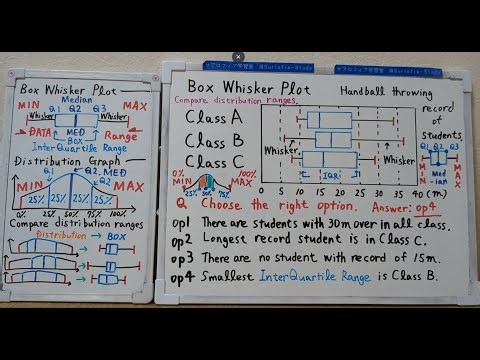 Box Whisker Plot
Median
MIN Q1 Q2 Q3 MAX
Whisker Whisker
DATA MED Range
Box
InterQuartile Range
Distribution Graph
Q2. MED
Q1 Q2
MIN MAX
25% 25% 25% 25%
0% 25% 50% 75% 100%
Compare distribution ranges
Distribution → BOX
@Surtofie-Study
Box Whisker Plot Handball throwing
Compare distribution ranges.
record of students
Class A
Class B
Class C
Whisker
Whisker
IQR
Q1 Q2 Q3
MIN Median MAX
0 5 10 15 20 25 30 35 40 (m)
0% MIN 100% MAX
25% 50% 75%
Q Choose the right option. Answer: op4
op1 There are students with 30m over in all class.
op2 Longest record student is in Class C.
op3 There are no student with record of 15m.
op4 Smallest InterQuartile Range is Class B.